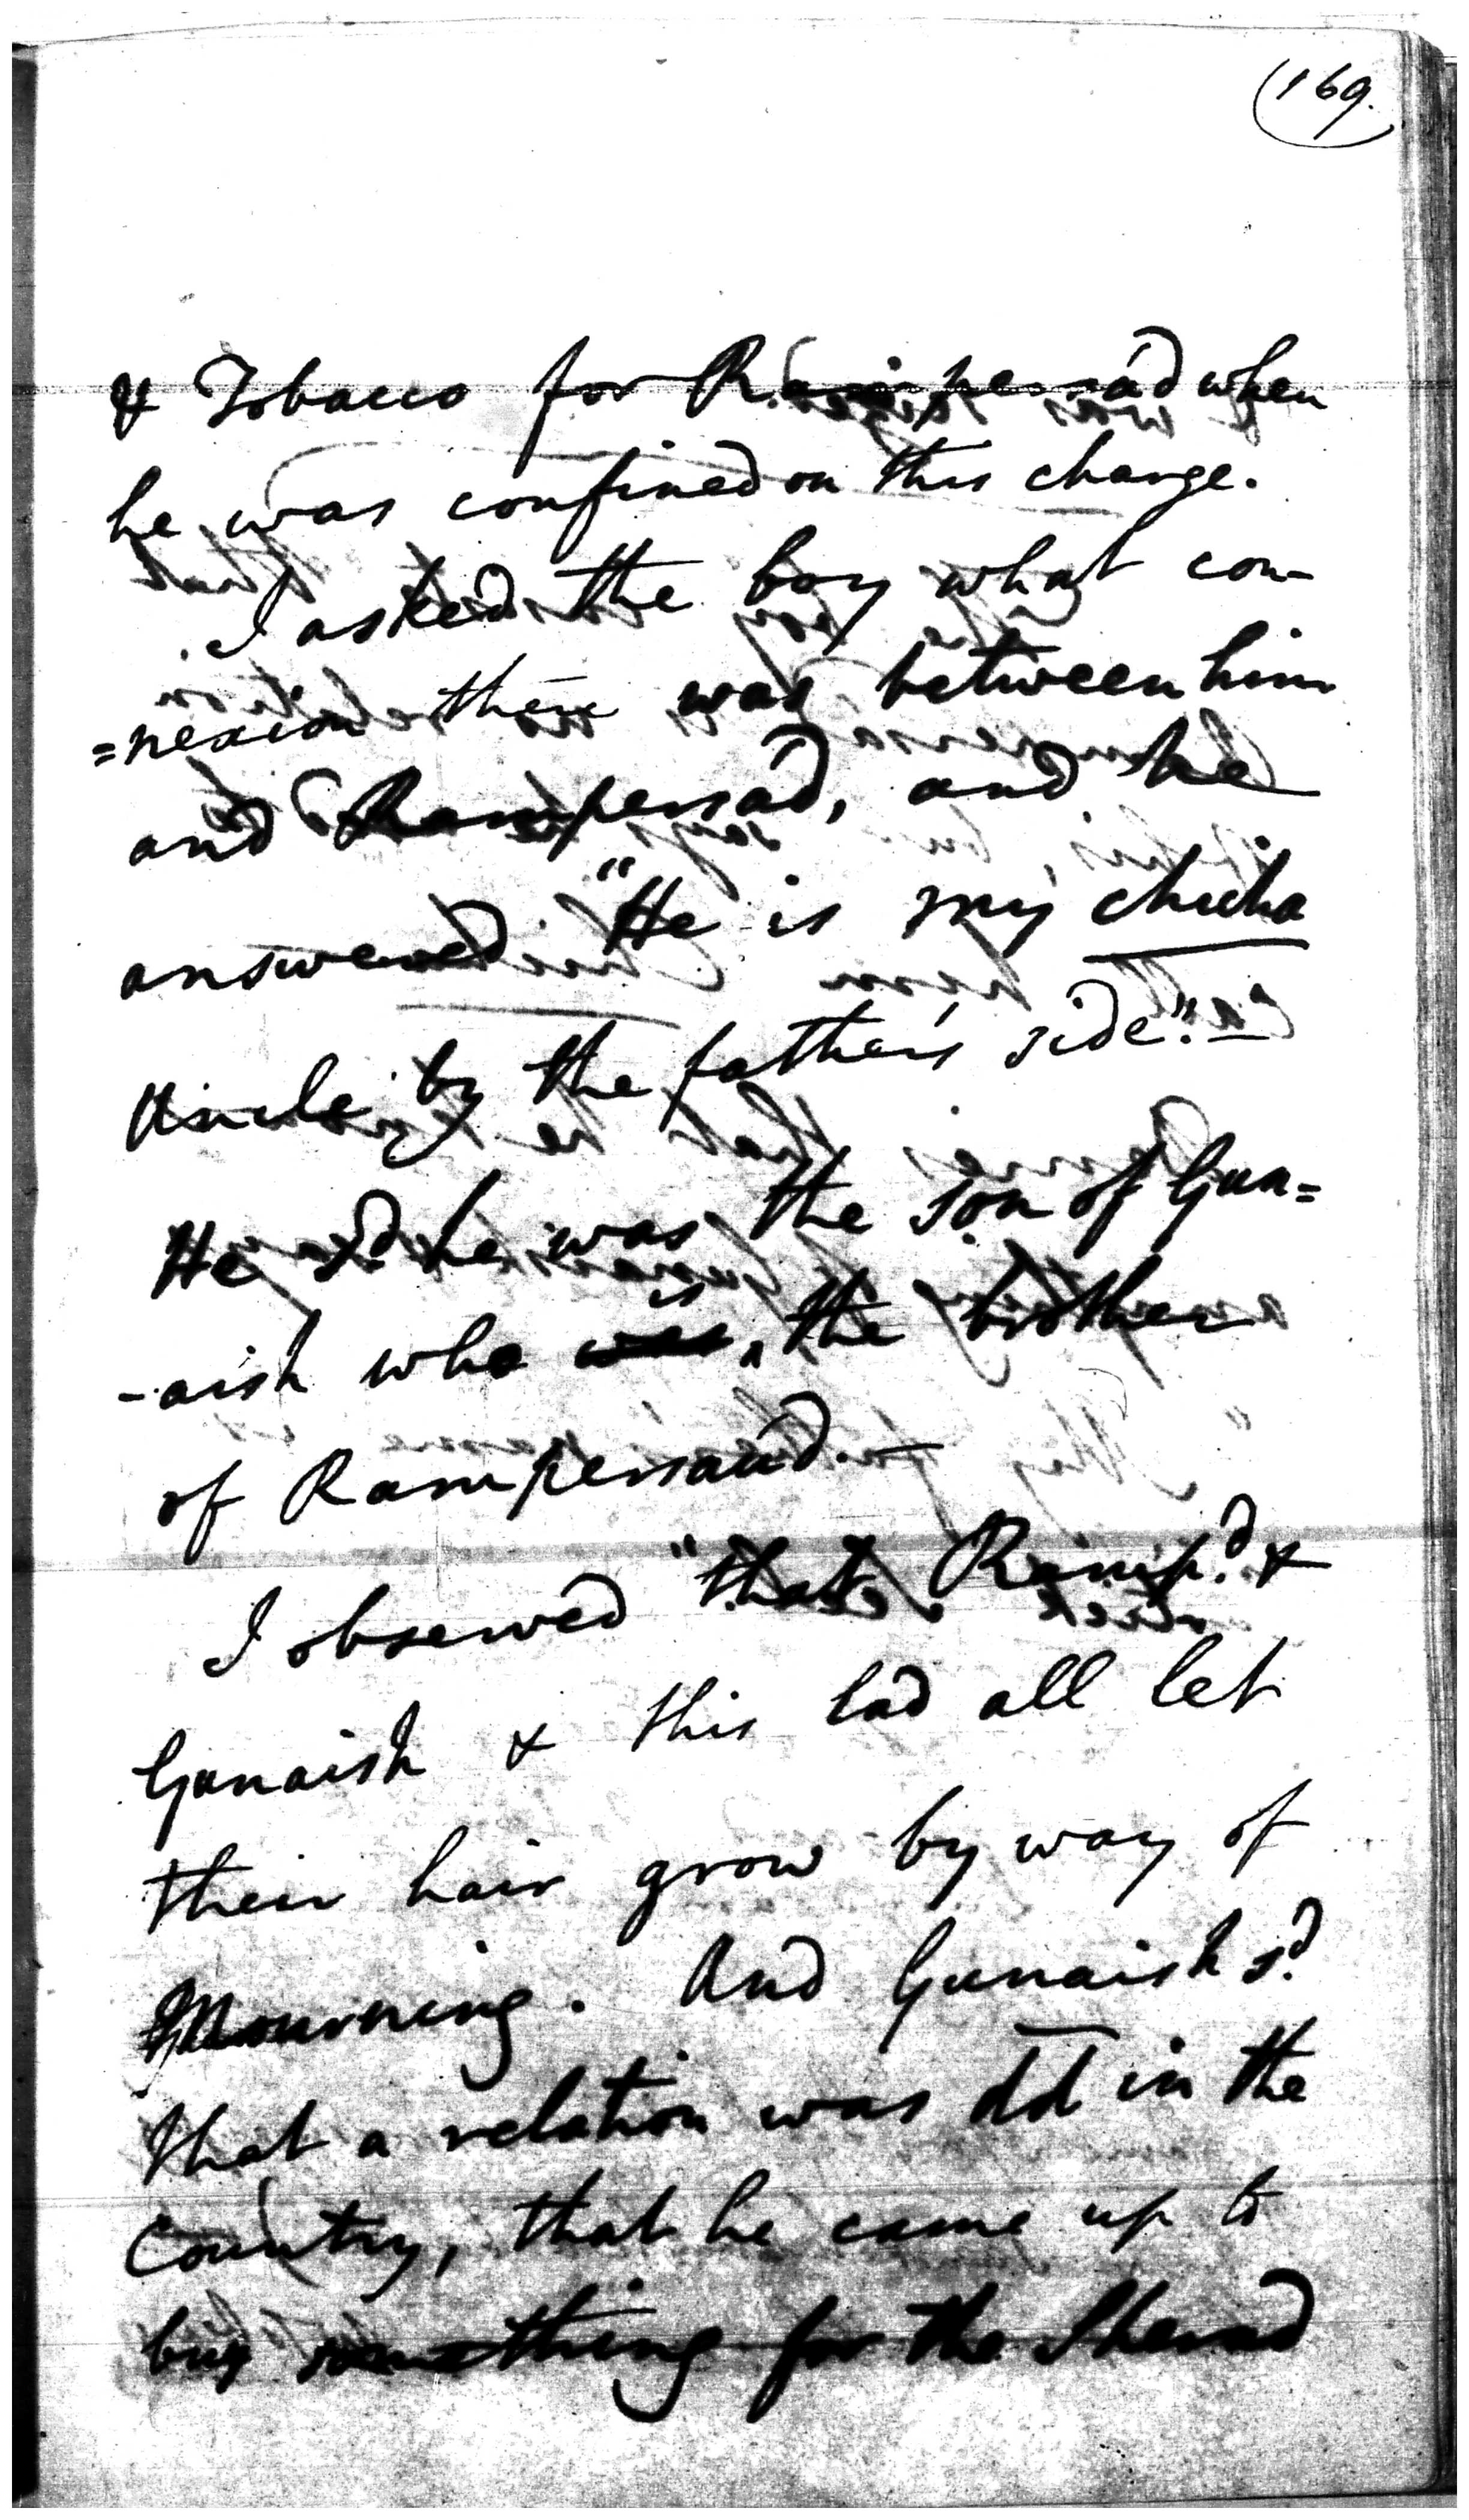 (169.
& Tobacco for Rampersad when
he was confined on this charge.
I asked the boy what con-
=nexion there was between him
and Rampersad, and he
answered "He is my chucha
Uncle by the father's side."—
He sd. he was the son of Gun=
-aish who was is the brother
of Rampersaud.—
I observed "that Ramp.d &
Gunaish & this lad all let
their hair grow by way of
Mourning. And Gunaish sd.
that a relation was dd in the
Country, that he came up to
buy something for the Sherad